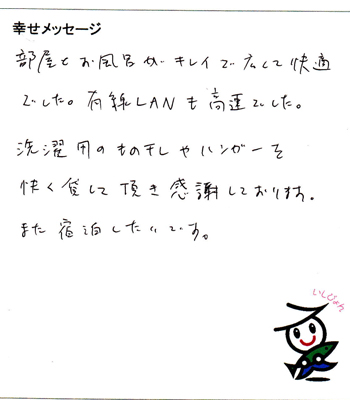 幸せメッセージ
部屋とお風呂がキレイで広くて快適
でした。有線LANも高速でした。
洗濯用のもの干しやハンガーを
快く貸して頂き感謝しております。
また宿泊したいです。
いしぴょん